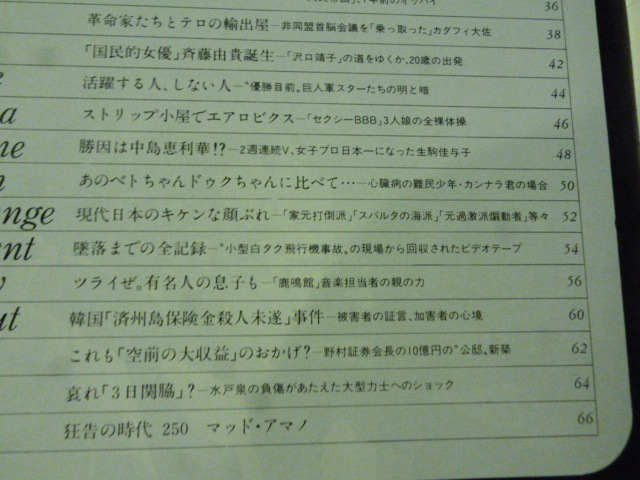 36
革命家たちとテロの輸出屋—非同盟首脳会議を「乗っ取った」カダフィ大佐 38
「国民的女優」斉藤由貴誕生—「沢口靖子」の道をゆくか、20歳の出発 42
活躍する人、しない人—“優勝目前”。巨人軍スターたちの明と暗 44
ストリップ小屋でエアロビクス—「セクシーBBB」3人娘の全裸体操 46
勝因は中島恵利華!?—2週連続V、女子プロ日本一になった生駒佳与子 48
あのベトちゃんドゥクちゃんに比べて…—心臓病の難民少年・カンナラ君の場合 50
ange 現代日本のキケンな顔ぶれ—「家元打倒派」「スパルタの海派」「元過激派煽動者」等々 52
墜落までの全記録—“小型白タク飛行機事故”の現場から回収されたビデオテープ 54
ツライぜ。有名人の息子も—「鹿鳴館」音楽担当者の親の力 56
韓国「済州島保険金殺人未遂」事件—被害者の証言、加害者の心境 60
これも「空前の大収益」のおかげ?—野村証券会長の10億円の“公邸”新築 62
哀れ「3日関脇」?—水戸泉の負傷があたえた大型力士へのショック 64
狂告の時代 250 マッド・アマノ 66